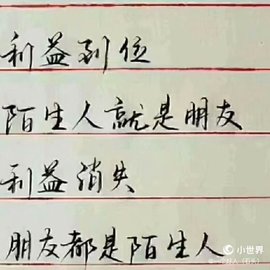 利益到位
陌生人就是朋友
利益消失
朋友都是陌生人
小世界